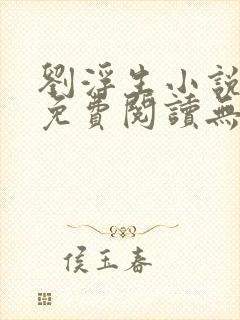 劉浮生小說
免費閱讀無
侯玉春